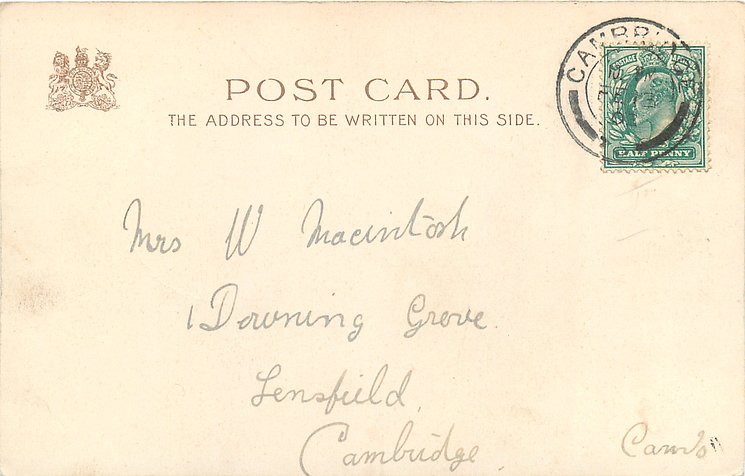 POST CARD.
THE ADDRESS TO BE WRITTEN ON THIS SIDE.
CAMBRIDGE
HALF PENNY
Mrs W Macintosh
1 Downing Grove
Lensfield,
Cambridge